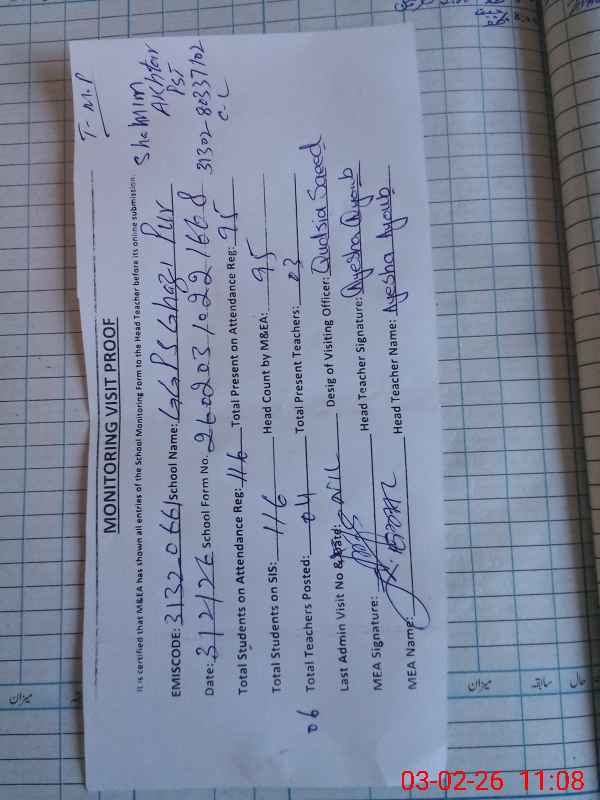 T- M.P
Shamim
Akhtar
PST
31302-8033710-2
C-L
MONITORING VISIT PROOF
It is certified that M&EA has shown all entries of the School Monitoring Form to the Head Teacher before its online submission.
EMISCODE: 31320661 School Name: GGPS Ghazi Pur
Date: 3/2/26 School Form No. 260203102216 68
Total Students on Attendance Reg: 116 Total Present on Attendance Reg: 95
Total Students on SIS: 116 Head Count by M&EA: 95
06 Total Teachers Posted: 04 Total Present Teachers: 03
Last Admin Visit No & Date: NIL Desig of Visiting Officer: Qudsia Saeed
MEA Signature: Head Teacher Signature: Ayesha Ayoub
MEA Name: Head Teacher Name: Ayesha Ayoub
میزان
میزان
سابقہ
حال
03-02-26 11:08